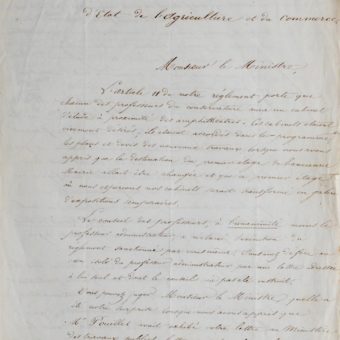 d'Etat de l'Agriculture et du Commerce
Monsieur le Ministre,
L'article 11 de notre règlement porte que
chacun des professeurs du conservatoire aura un cabinet
d'étude à proximité des amphithéâtres. Ces cabinets étaient
vivement désirés, ils étaient dans les programmes
les plans et devis des nouveaux travaux lorsque nous avons
appris que la destination du premier étage de l'ancienne
allait être changée et que ce premier étage
où nous espérions nos cabinets serait transformé en galerie
d'expositions temporaires.
Le conseil des professeurs, à l'unanimité moins le
professeur administrateur a réclamé l'exécution du
règlement sanctionné par
un du professeur administrateur par une lettre
et dont le conseil
Vous pouvez juger Monsieur le Ministre quelle a
été notre surprise lorsque nous avons appris que
M. Pouillet avait votre lettre au Ministre
des travaux publics